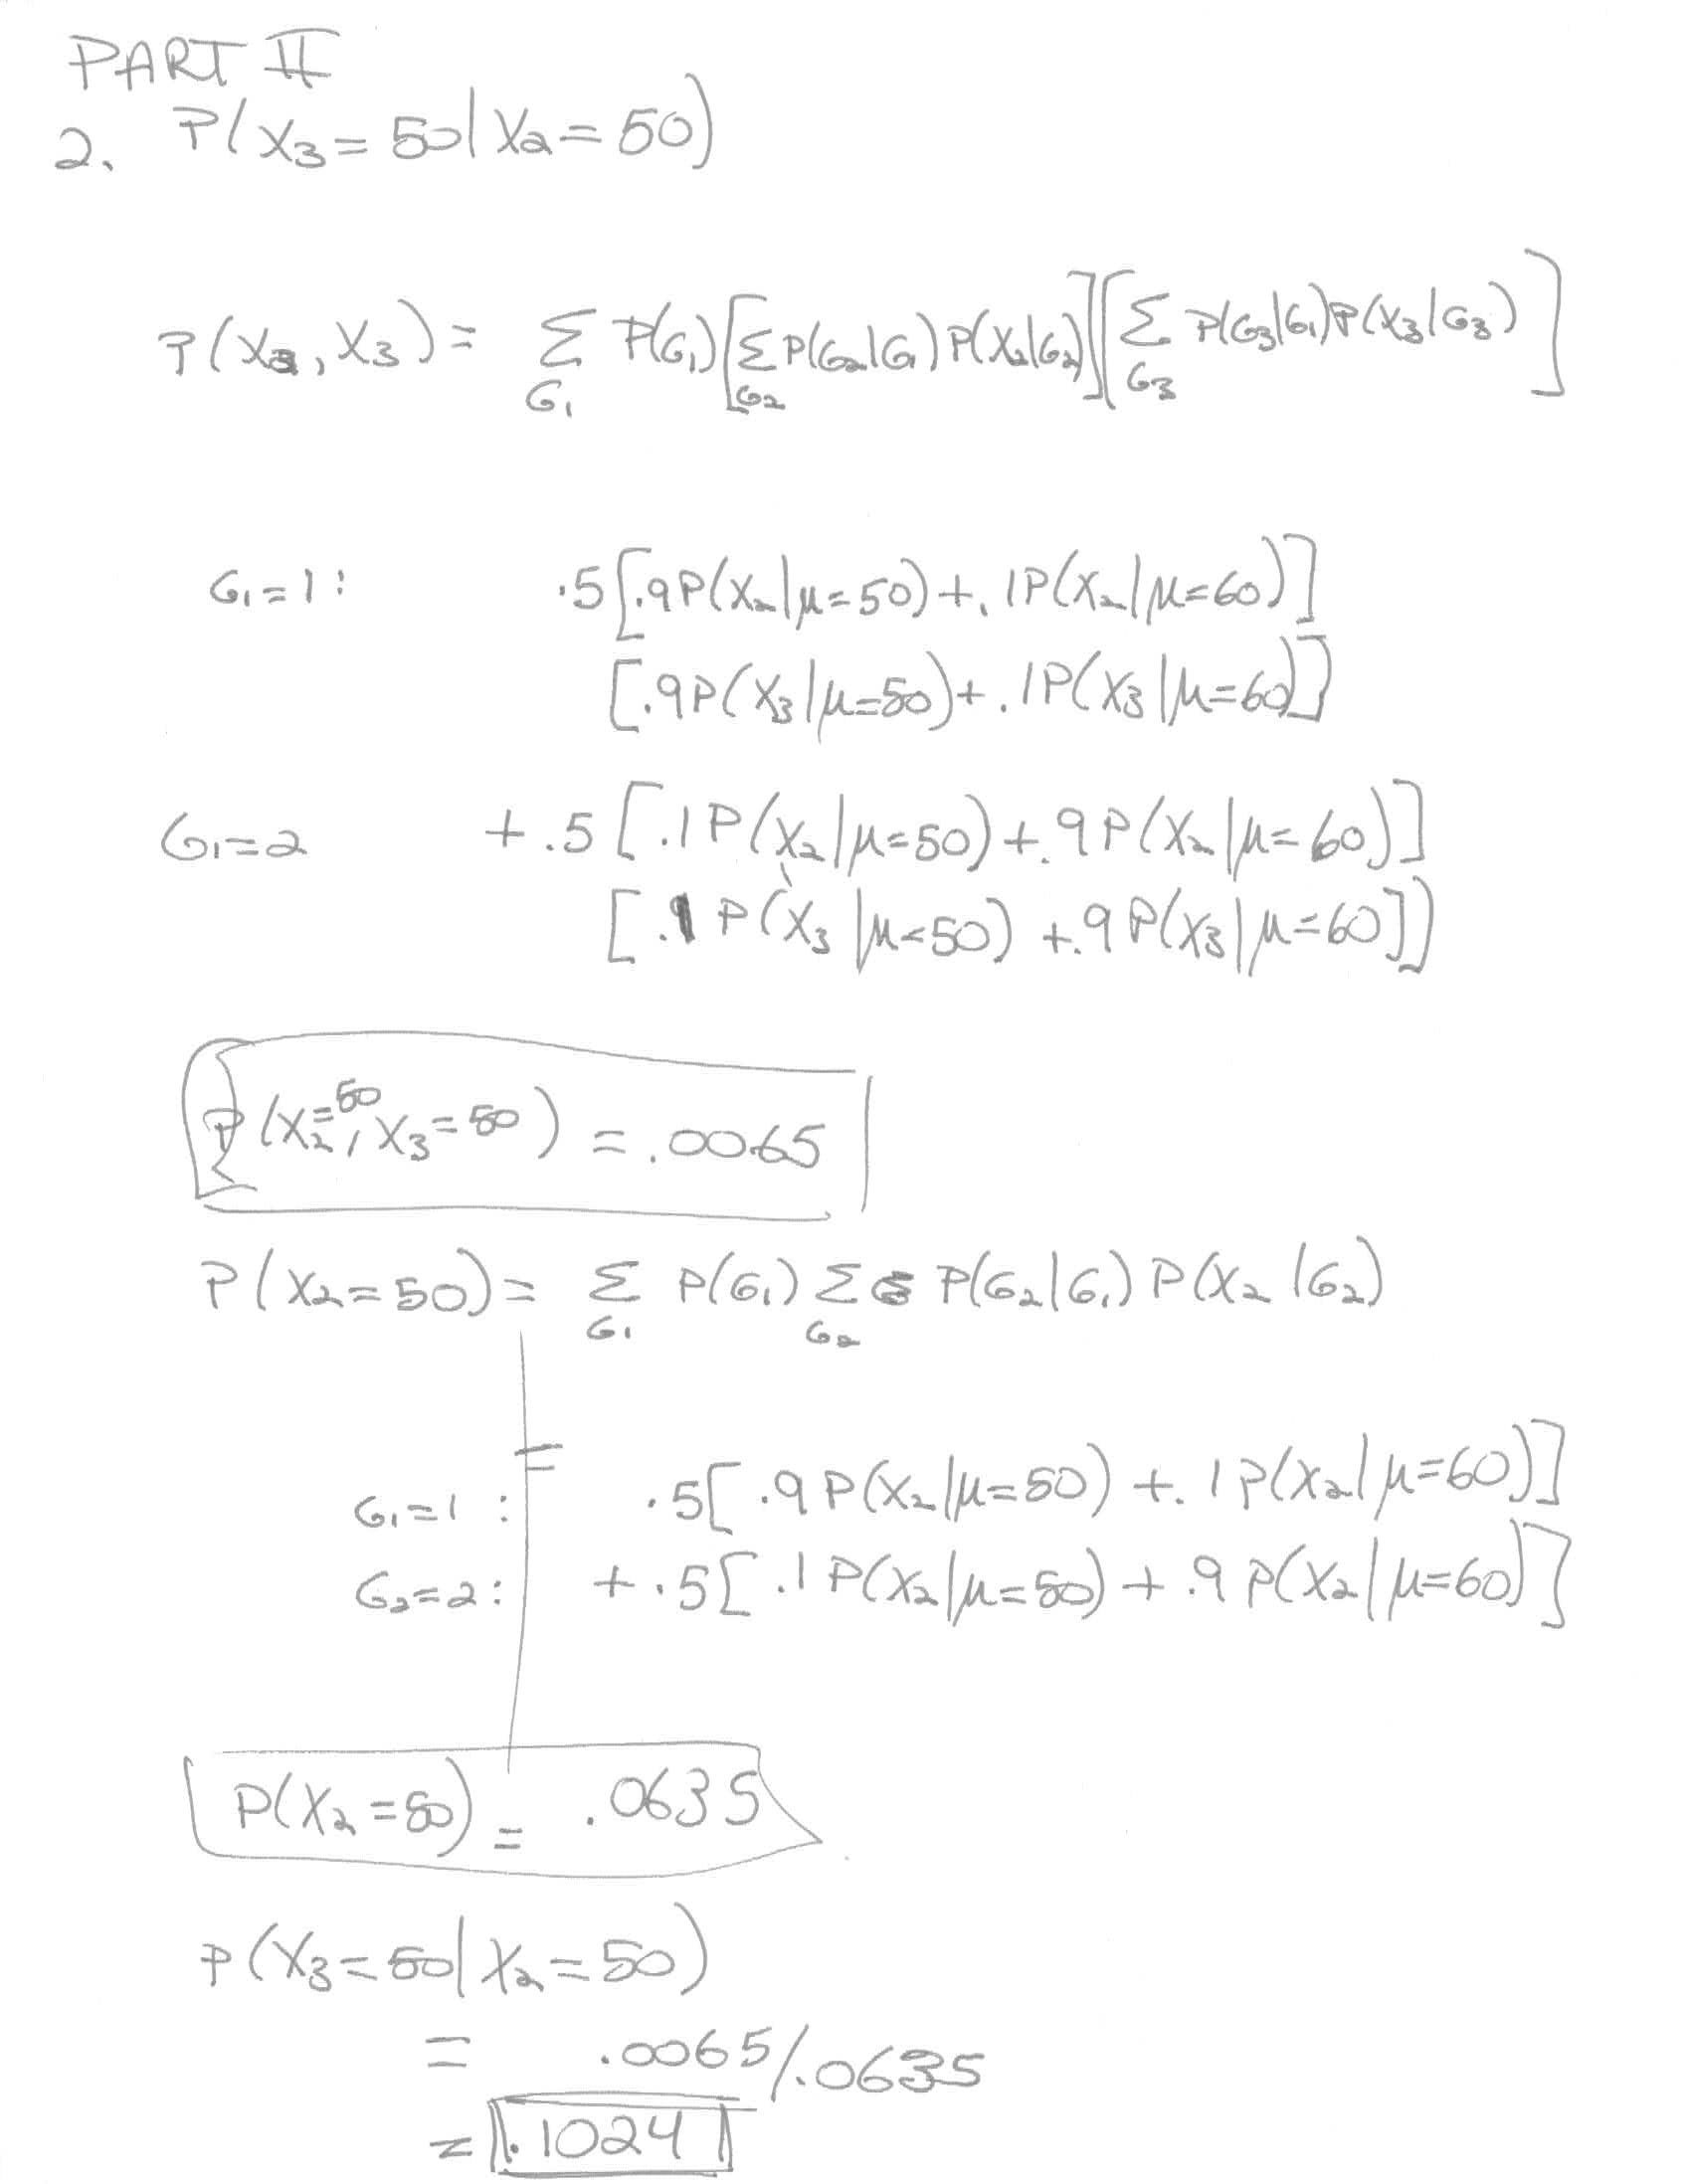 PART II
2. P(X₃=50|X₂=50)
P(X₂,X₃)= Σ_G₁ P(G₁)[Σ_G₂ P(G₂|G₁)P(X₂|G₂)][Σ_G₃ P(G₃|G₁)P(X₃|G₃)]
G₁=1: .5[.9P(X₂|μ=50)+.1P(X₂|μ=60)]
[.9P(X₃|μ=50)+.1P(X₃|μ=60)]
G₁=2 +.5[.1P(X₂|μ=50)+.9P(X₂|μ=60)]
[.1P(X₃|μ=50)+.9P(X₃|μ=60)])
P(X₂=50,X₃=50)=.0065
P(X₂=50)= Σ_G₁ P(G₁) Σ_G₂ P(G₂|G₁)P(X₂|G₂)
=
G₁=1: .5[.9P(X₂|μ=50)+.1P(X₂|μ=60)]
G₂=2: +.5[.1P(X₂|μ=50)+.9P(X₂|μ=60)]
P(X₂=50)= .0635
P(X₃=50|X₂=50)
= .0065/.0635
= .1024